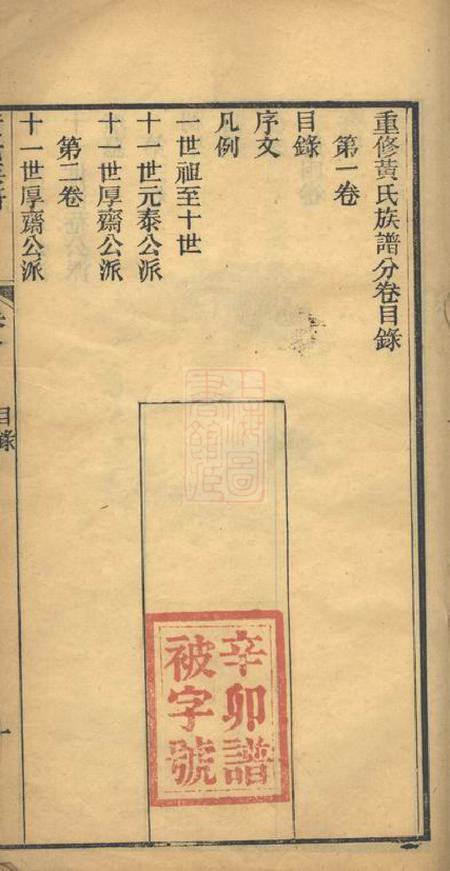 重修黃氏族譜分卷目錄
第一卷
目錄
序文
凡例
一世祖至十世
十一世元泰公派
十一世厚齋公派
第二卷
十一世厚齋公派
目錄
一
上海圖
書館藏
辛卯譜
被字號